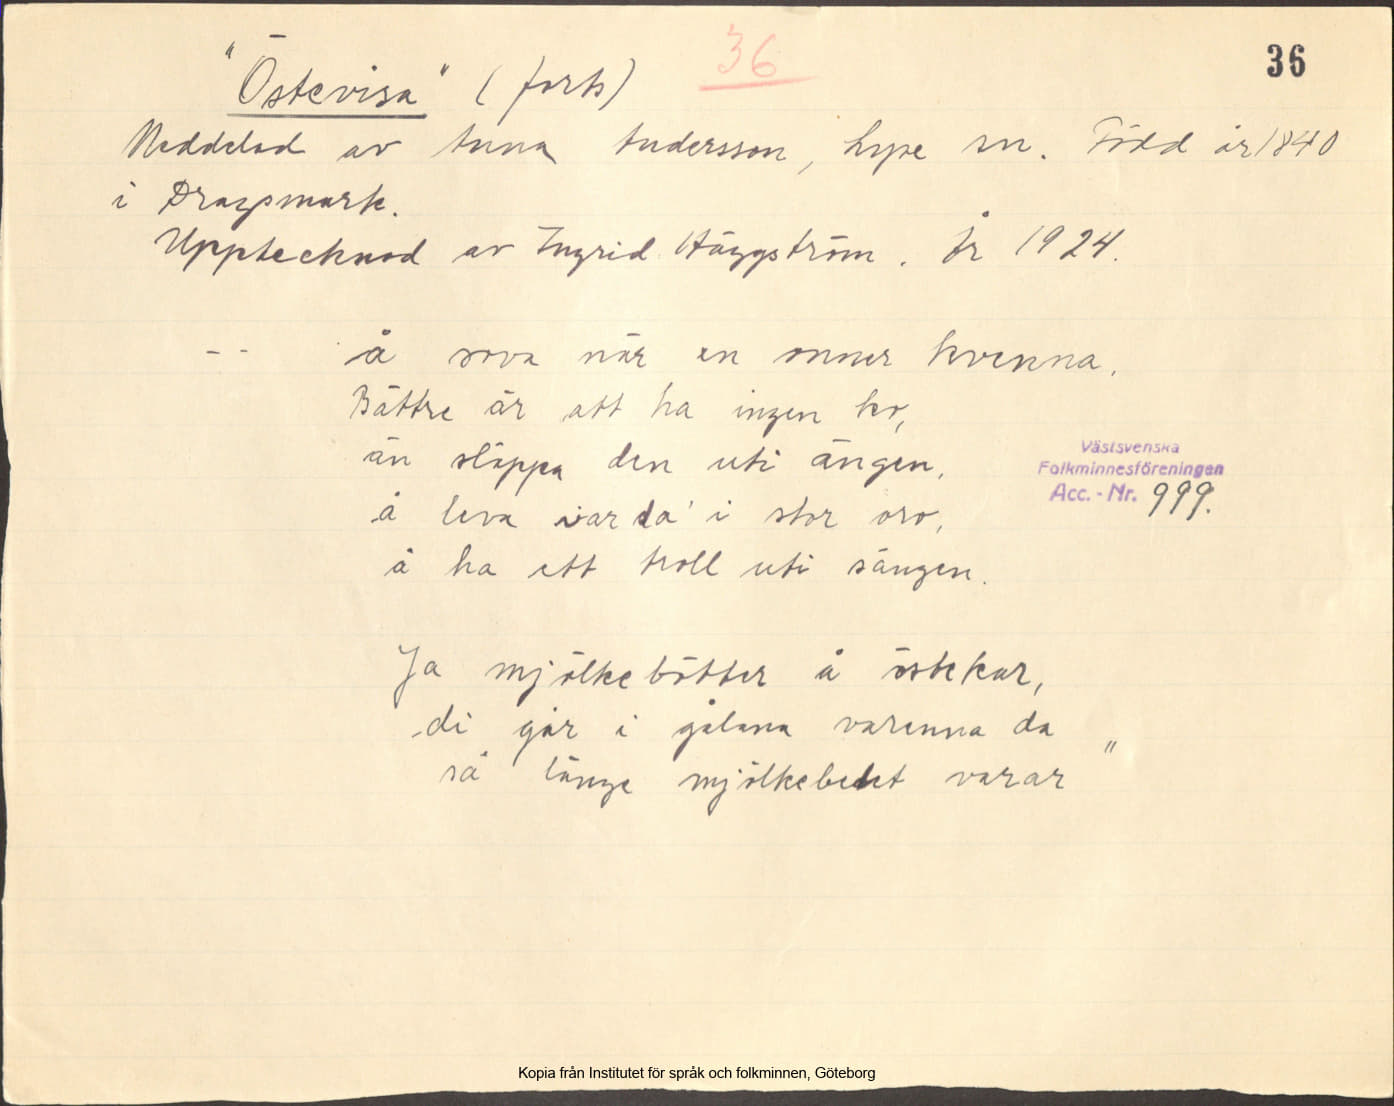 36
36
"Östevisa" (forts)
Meddelad av Anna Andersson, Lyse sn. Född år 1840
i Dragsmark.
Upptecknad av Ingrid Häggström. År 1924.
-- å sova när en onner kvenna.
Bättre är att ha ingen ko,
än släppa den uti ängen,
å leva varda' i stor oro,
å ha ett troll uti sängen.
Västsvenska
Folkminnesföreningen
Acc.-Nr. 999.
Ja mjölkebötter å östekar,
di går i gålana varenna da
så länge mjölkebelet varar"
Kopia från Institutet för språk och folkminnen, Göteborg